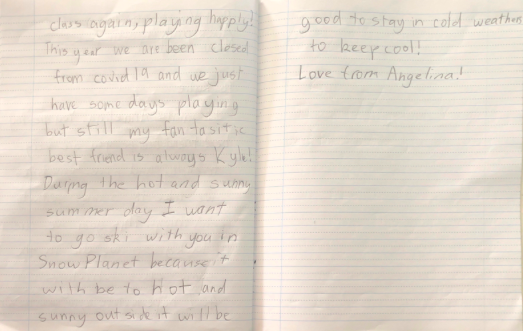 class again, playing happy!
This year we are been closed
from covid 19 and we just
have some days playing
but still my fantasitic
best friend is always Kyle!
During the hot and sunny
summer day I want
to go ski with you in
Snow Planet because it
with be to hot and
sunny outside it will be
good to stay in cold weather
to keep cool!
Love from Angelina!